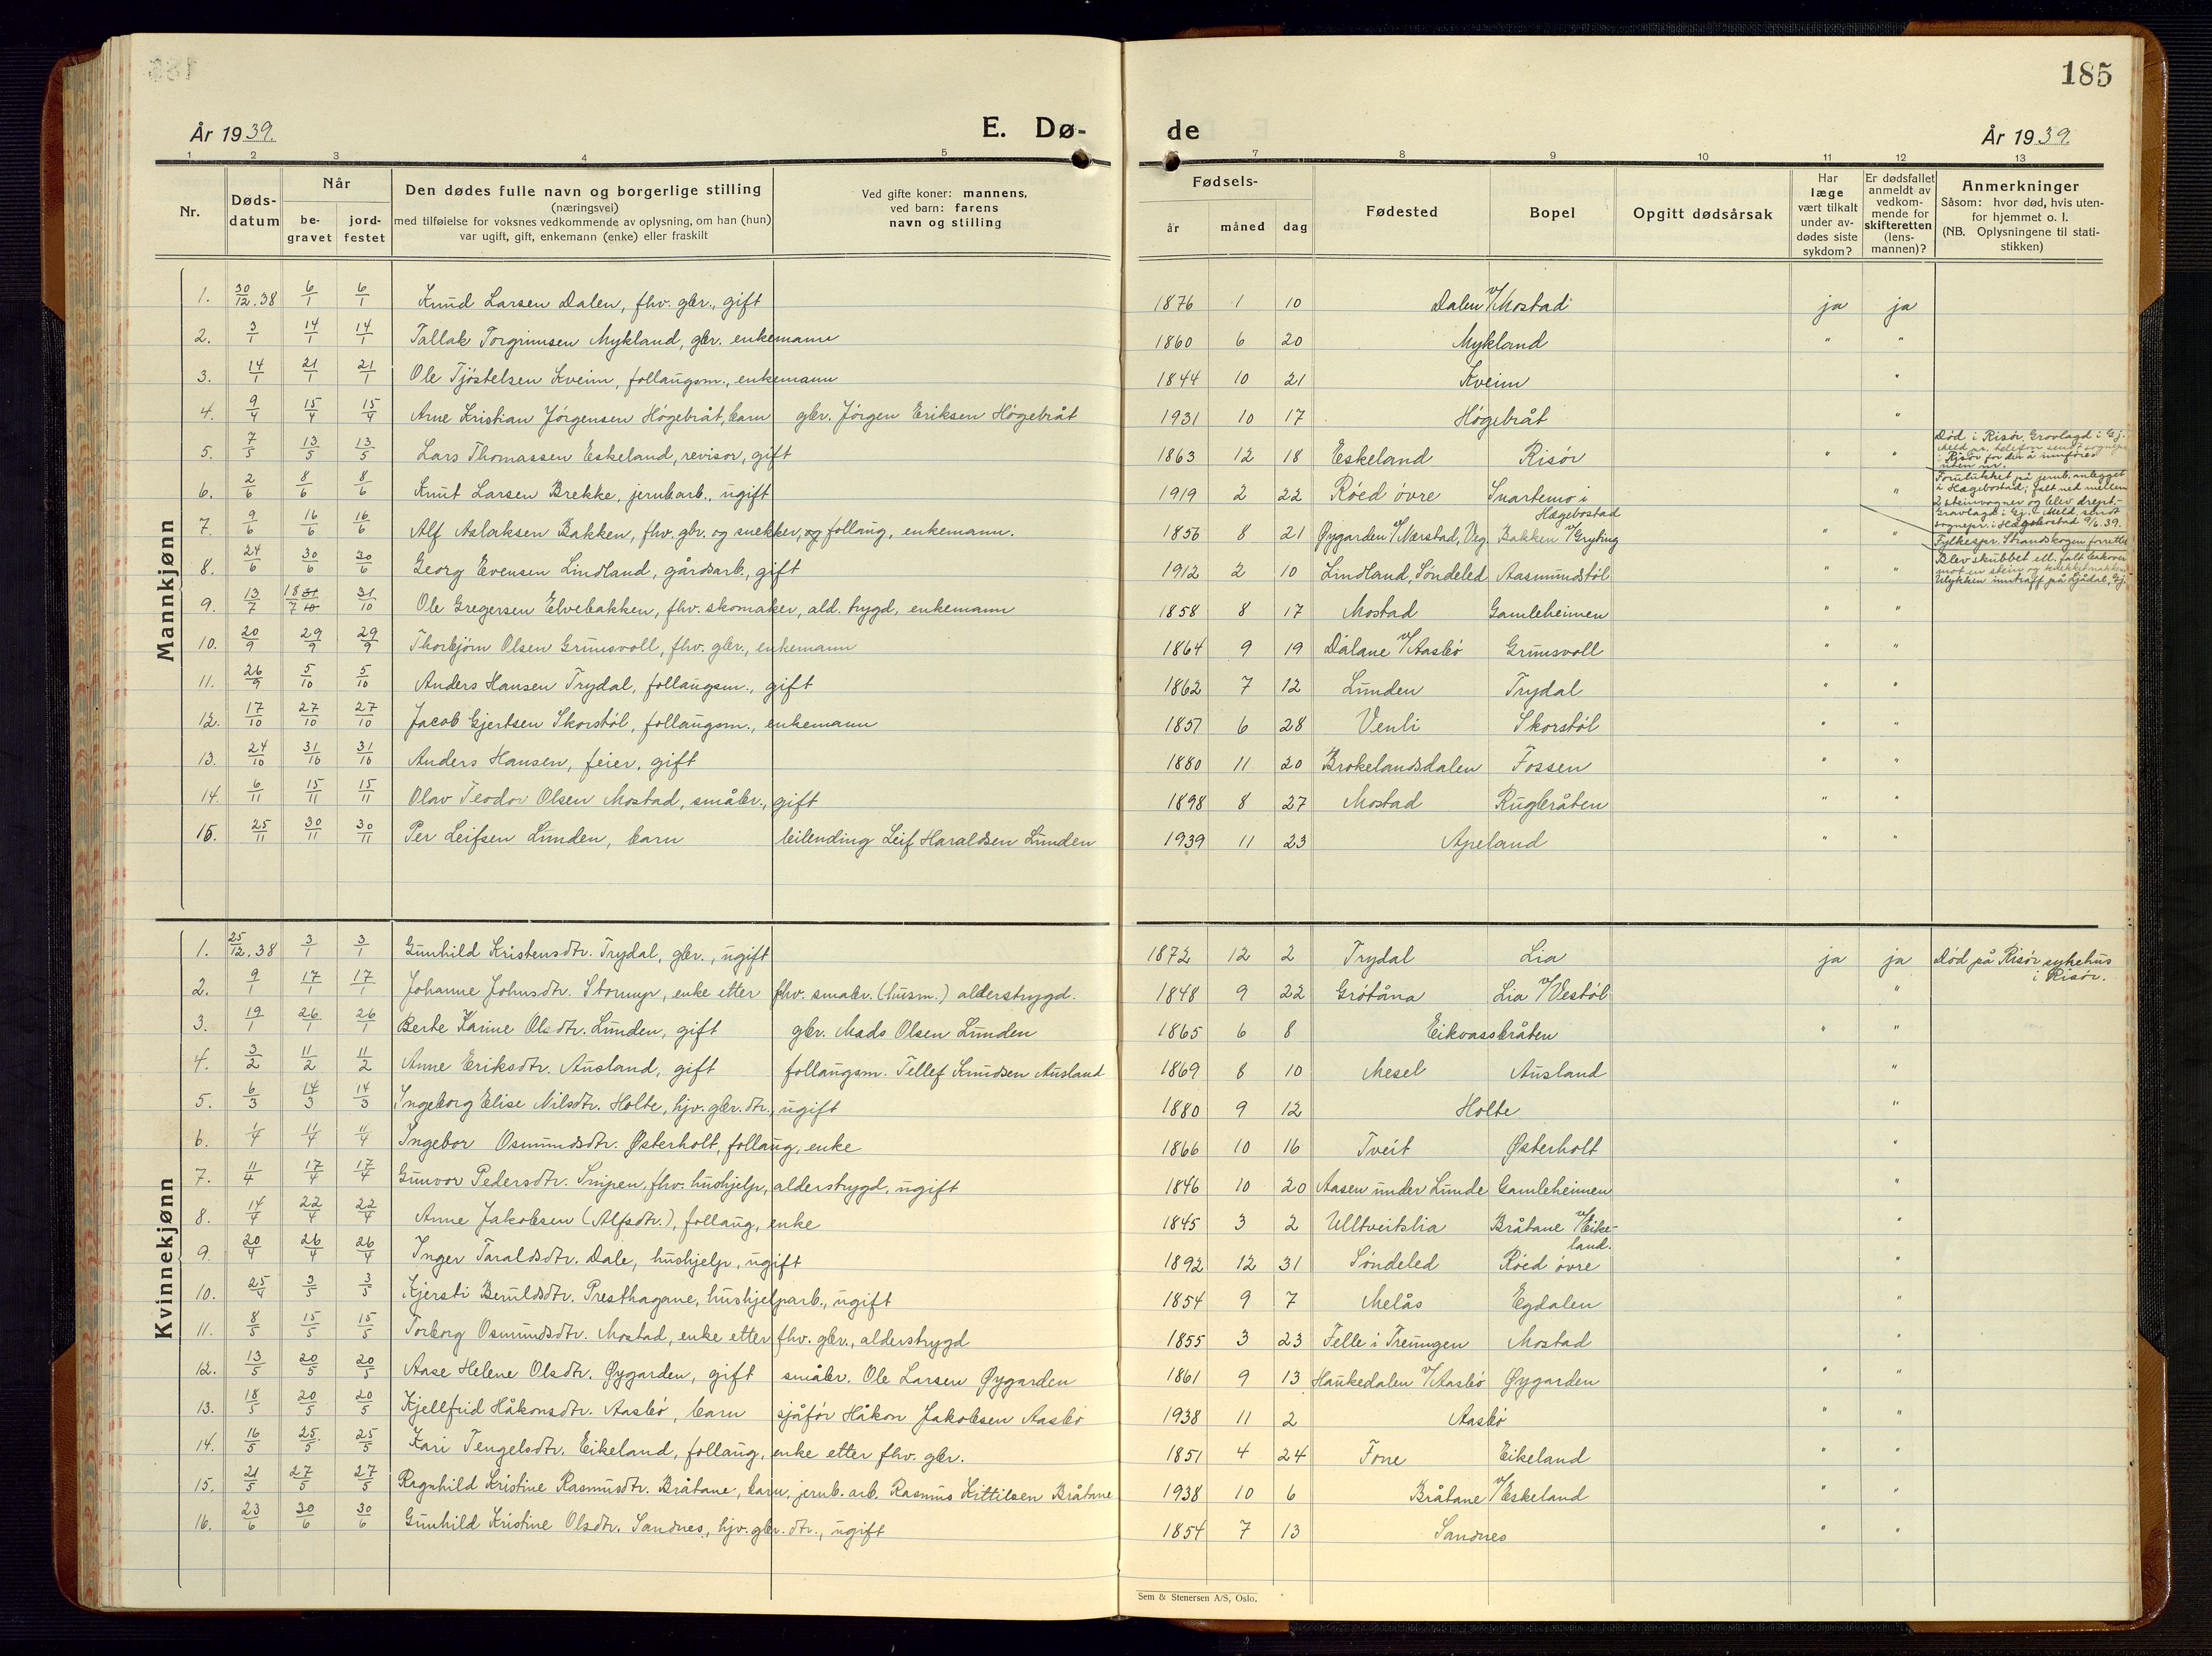 185
År 1939.
E. Dø-
de
År 1939.
1 2 3 4 5 6 7 8 9 10 11 12 13
Nr.
Døds-
datum
Når
be-
gravet
jord-
festet
Den dødes fulle navn og borgerlige stilling
(næringsvei)
med tilføielse for voksnes vedkommende av oplysning, om han (hun)
var ugift, gift, enkemann (enke) eller fraskilt
Ved gifte koner: mannens,
ved barn: farens
navn og stilling
Fødsels-
år måned dag
Fødested
Bopel
Opgitt dødsårsak
Har
læge
vært tilkalt
under av-
dødes siste
sykdom?
Er dødsfallet
anmeldt av
vedkom-
mende for
skifteretten
(lens-
mannen)?
Anmerkninger
Såsom: hvor død, hvis uten-
for hjemmet o. l.
(NB. Oplysningene til stati-
stikken)
Mannkjønn
1. 30/12.38 6/1 6/1 Knud Larsen Dalen, fhv. gbr., gift 1876 1 10 Dalen v/Mostad ja ja
2. 3/1 14/1 14/1 Tallak Torgrimsen Mykland, gbr. enkemann 1860 6 20 Mykland " "
3. 14/1 21/1 21/1 Ole Tjöstelsen Kveim, follaugsm., enkemann 1844 10 21 Kveim "
4. 9/4 15/4 15/4 Arne Kristian Jörgensen Högebråt, barn gbr. Jörgen Eriksen Högebråt 1931 10 17 Högebråt "
5. 7/5 13/5 13/5 Lars Thomassen Eskeland, revisor, gift 1863 12 18 Eskeland Risör " " Död i Risör. Gravlagd i Gj.
i Risör for der å innföres
uten nr.
6. 2/6 8/6 8/6 Knut Larsen Brekke, jernb.arb., ugift 1919 2 22 Röed övre Snartemo i
Hægebostad " Forulukket på jernb.anlegget
i Hægebostad; falt ned mellem
2 steinvogner og blev drept.-
Gravlagd i Gj. - Meld. sendt
sognepr. i Hægebostad 9/6.39.
7. 9/6 16/6 16/6 Alf Aslaksen Bakken, fhv. gbr. og snekker, og follaug, enkemann. 1856 8 21 Øygarden v/Nærstad, Veg. Bakken v/Gryting " " Fylkespr. Strandskogen forrettet
8. 24/6 30/6 30/6 Georg Evensen Lindland, gårdsarb., gift 1912 2 10 Lindland, Söndeled Aasmundstöl " " Blev skubbet ell. falt bakover
mot en stein og
Ulykken inntraff på Ljådal, Gj.
9. 13/7 18/7 31/10 31/10 Ole Gregersen Elvebakken, fhv. skomaker, ald. trygd, enkemann 1858 8 17 Mostad Gamleheimen " "
10. 20/9 29/9 29/9 Thorbjörn Olsen Grimsvoll, fhv. gbr., enkemann 1864 9 19 Dalane v/Aasbö Grimsvoll " "
11. 26/9 5/10 5/10 Anders Hansen Trydal, follaugsm., gift 1862 7 12 Lunden Trydal " "
12. 17/10 27/10 27/10 Jacob Gjertsen Skorstöl, follaugsm., enkemann 1857 6 28 Venli Skorstöl " "
13. 24/10 31/10 31/10 Anders Hansen, feier, gift 1880 11 20 Brokelandsdalen Fossen " "
14. 6/11 15/11 15/11 Olav Teodor Olsen Mostad, småbr., gift 1898 8 27 Mostad Rugbråten " "
15. 25/11 30/11 30/11 Per Leifsen Lunden, barn leilending Leif Haraldsen Lunden 1939 11 23 Apeland " "
Kvinnekjønn
1. 25/12.38 3/1 3/1 Gunhild Kristensdtr. Trydal, gbr., ugift 1872 12 2 Trydal Lia ja ja Död på Risör sykehus
i Risör.
2. 9/1 17/1 17/1 Johanne Johnsdtr. Stormyr, enke etter fhv. småbr. (husm.) alderstrygd. 1848 9 22 Grötåna Lia v/Vestöl "
3. 19/1 26/1 26/1 Berte Karine Olsdtr. Lunden, gift gbr. Mads Olsen Lunden 1865 6 8 Eikvassbråten " "
4. 3/2 11/2 11/2 Anne Eriksdtr. Ausland, gift follaugsm. Tellef Knudsen Ausland 1869 8 10 Mesel Ausland "
5. 6/3 14/3 14/3 Ingeborg Elise Nilsdtr. Holte, hjv. gbr. dtr., ugift 1880 9 12 Holte "
6. 1/4 11/4 11/4 Ingebor Osmundsdtr. Østerholt, follaug, enke 1866 10 16 Tveit Østerholt "
7. 11/4 17/4 17/4 Gunvor Pedersdtr. Snipen, fhv. hushjelp, alderstrygd, ugift 1846 10 20 Aasen under Lunde Gamleheimen "
8. 14/4 22/4 22/4 Anne Jakobsen (Alfsdtr.), follaug, enke 1845 3 2 Ulltveitslia Bråtane v/Eike-
land. "
9. 20/4 26/4 26/4 Inger Taraldsdtr. Dale, hushjelp, ugift 1892 12 31 Söndeled Röed övre "
10. 25/4 3/5 3/5 Kjersti Beruldsdtr. Presthagane, hushjelparb., ugift 1854 9 7 Melås Egdalen "
11. 8/5 15/5 15/5 Torborg Osmundsdtr. Mostad, enke etter fhv. gbr., alderstrygd 1855 3 23 Felle i Treungen Mostad "
12. 13/5 20/5 20/5 Aase Helene Olsdtr. Øygarden, gift småbr. Ole Larsen Øygarden 1861 9 13 Haukedalen v/Aasbö Øygarden " "
13. 18/5 20/5 20/5 Kjellfrid Håkonsdtr. Aasbö, barn sjåför Håkon Jakobsen Aasbö 1938 11 2 Aasbö " "
14. 16/5 25/5 25/5 Kari Tengelsdtr. Eikeland, follaug, enke etter fhv. gbr. 1851 4 24 Fone Eikeland " "
15. 21/5 27/5 27/5 Ragnhild Kristine Rasmusdtr. Bråtane, barn, jernb. arb. Rasmus Kittilsen Bråtane 1938 10 6 Bråtane v/Eskeland " "
16. 23/6 30/6 30/6 Gunhild Kristine Olsdtr. Sandnes, hjv. gbr. dtr., ugift 1854 7 13 Sandnes " "
Sem & Stenersen A/S, Oslo.